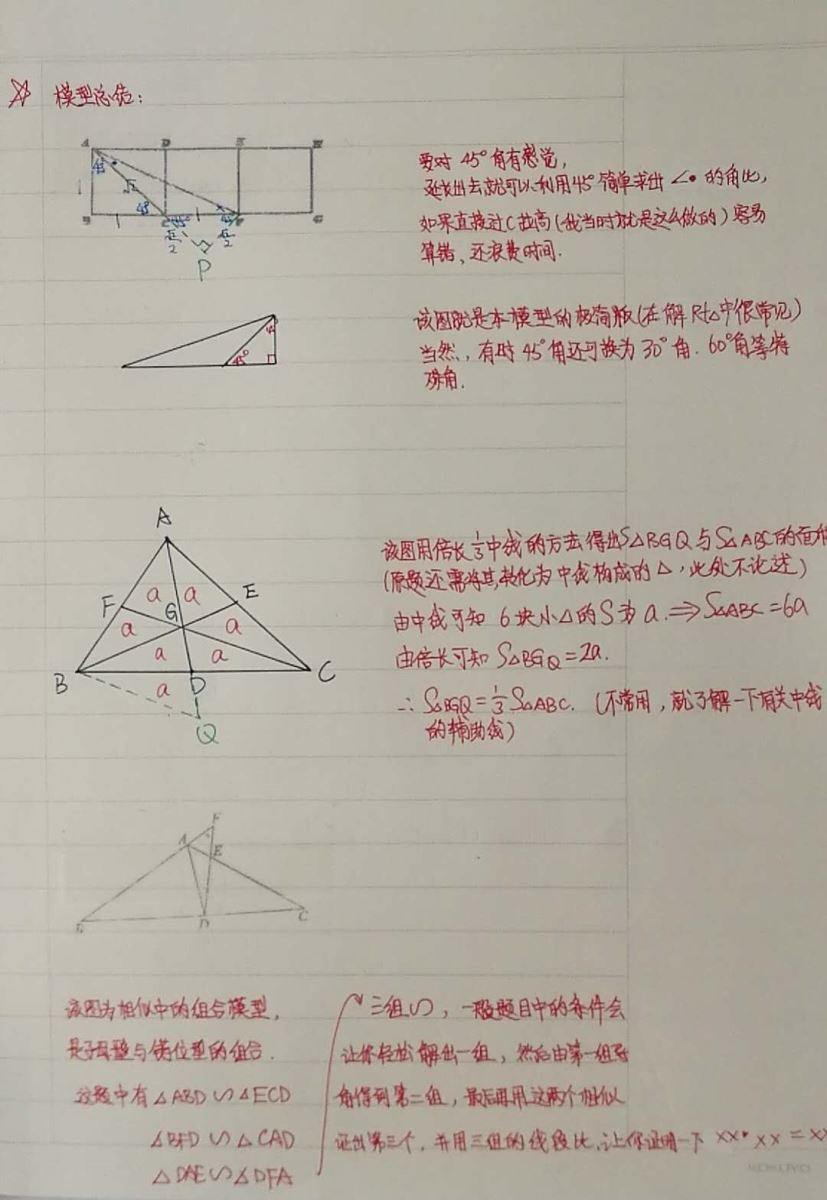 模型总结：
A D E H
45° √2 1
B 1 45° C 45° 1 45° F G
√2/2 √2/2
P
要对 45°角有感觉，
延长出去就可以利用45°简单求出∠•的角比，
如果直接过C拉高(我当时就是这么做的)容易
算错，还浪费时间.
45° 45°
该图就是本模型的极简版(在解Rt△中很常见)
当然，有时 45°角还可换为30°角.60°角等特
殊角.
A
F a a E
G
a a
a a
B D C
a
Q
该图用倍长1/3中线的方法得出S△BGQ与S△ABC的面积
(原题还需将其转化为中线构成的△，此处不论述)
由中线可知 6块小△的S为a.⇒S△ABC=6a
由倍长可知 S△BGQ=2a.
∴ S△BGQ=1/3 S△ABC. (不常用，就了解一下有关中线
的辅助线)
F
A E
B D C
该图为相似中的组合模型，
是子母型与错位型的组合.
这题中有△ABD∽△ECD
△BFD∽△CAD
△DAE∽△DFA
三组∽，一般题目中的条件会
让你轻松解出一组，然后由第一组导
角得到第二组，最后再用这两个相似
证出第三个，并用三组的线段比，让你证明一下 xx·xx=xx